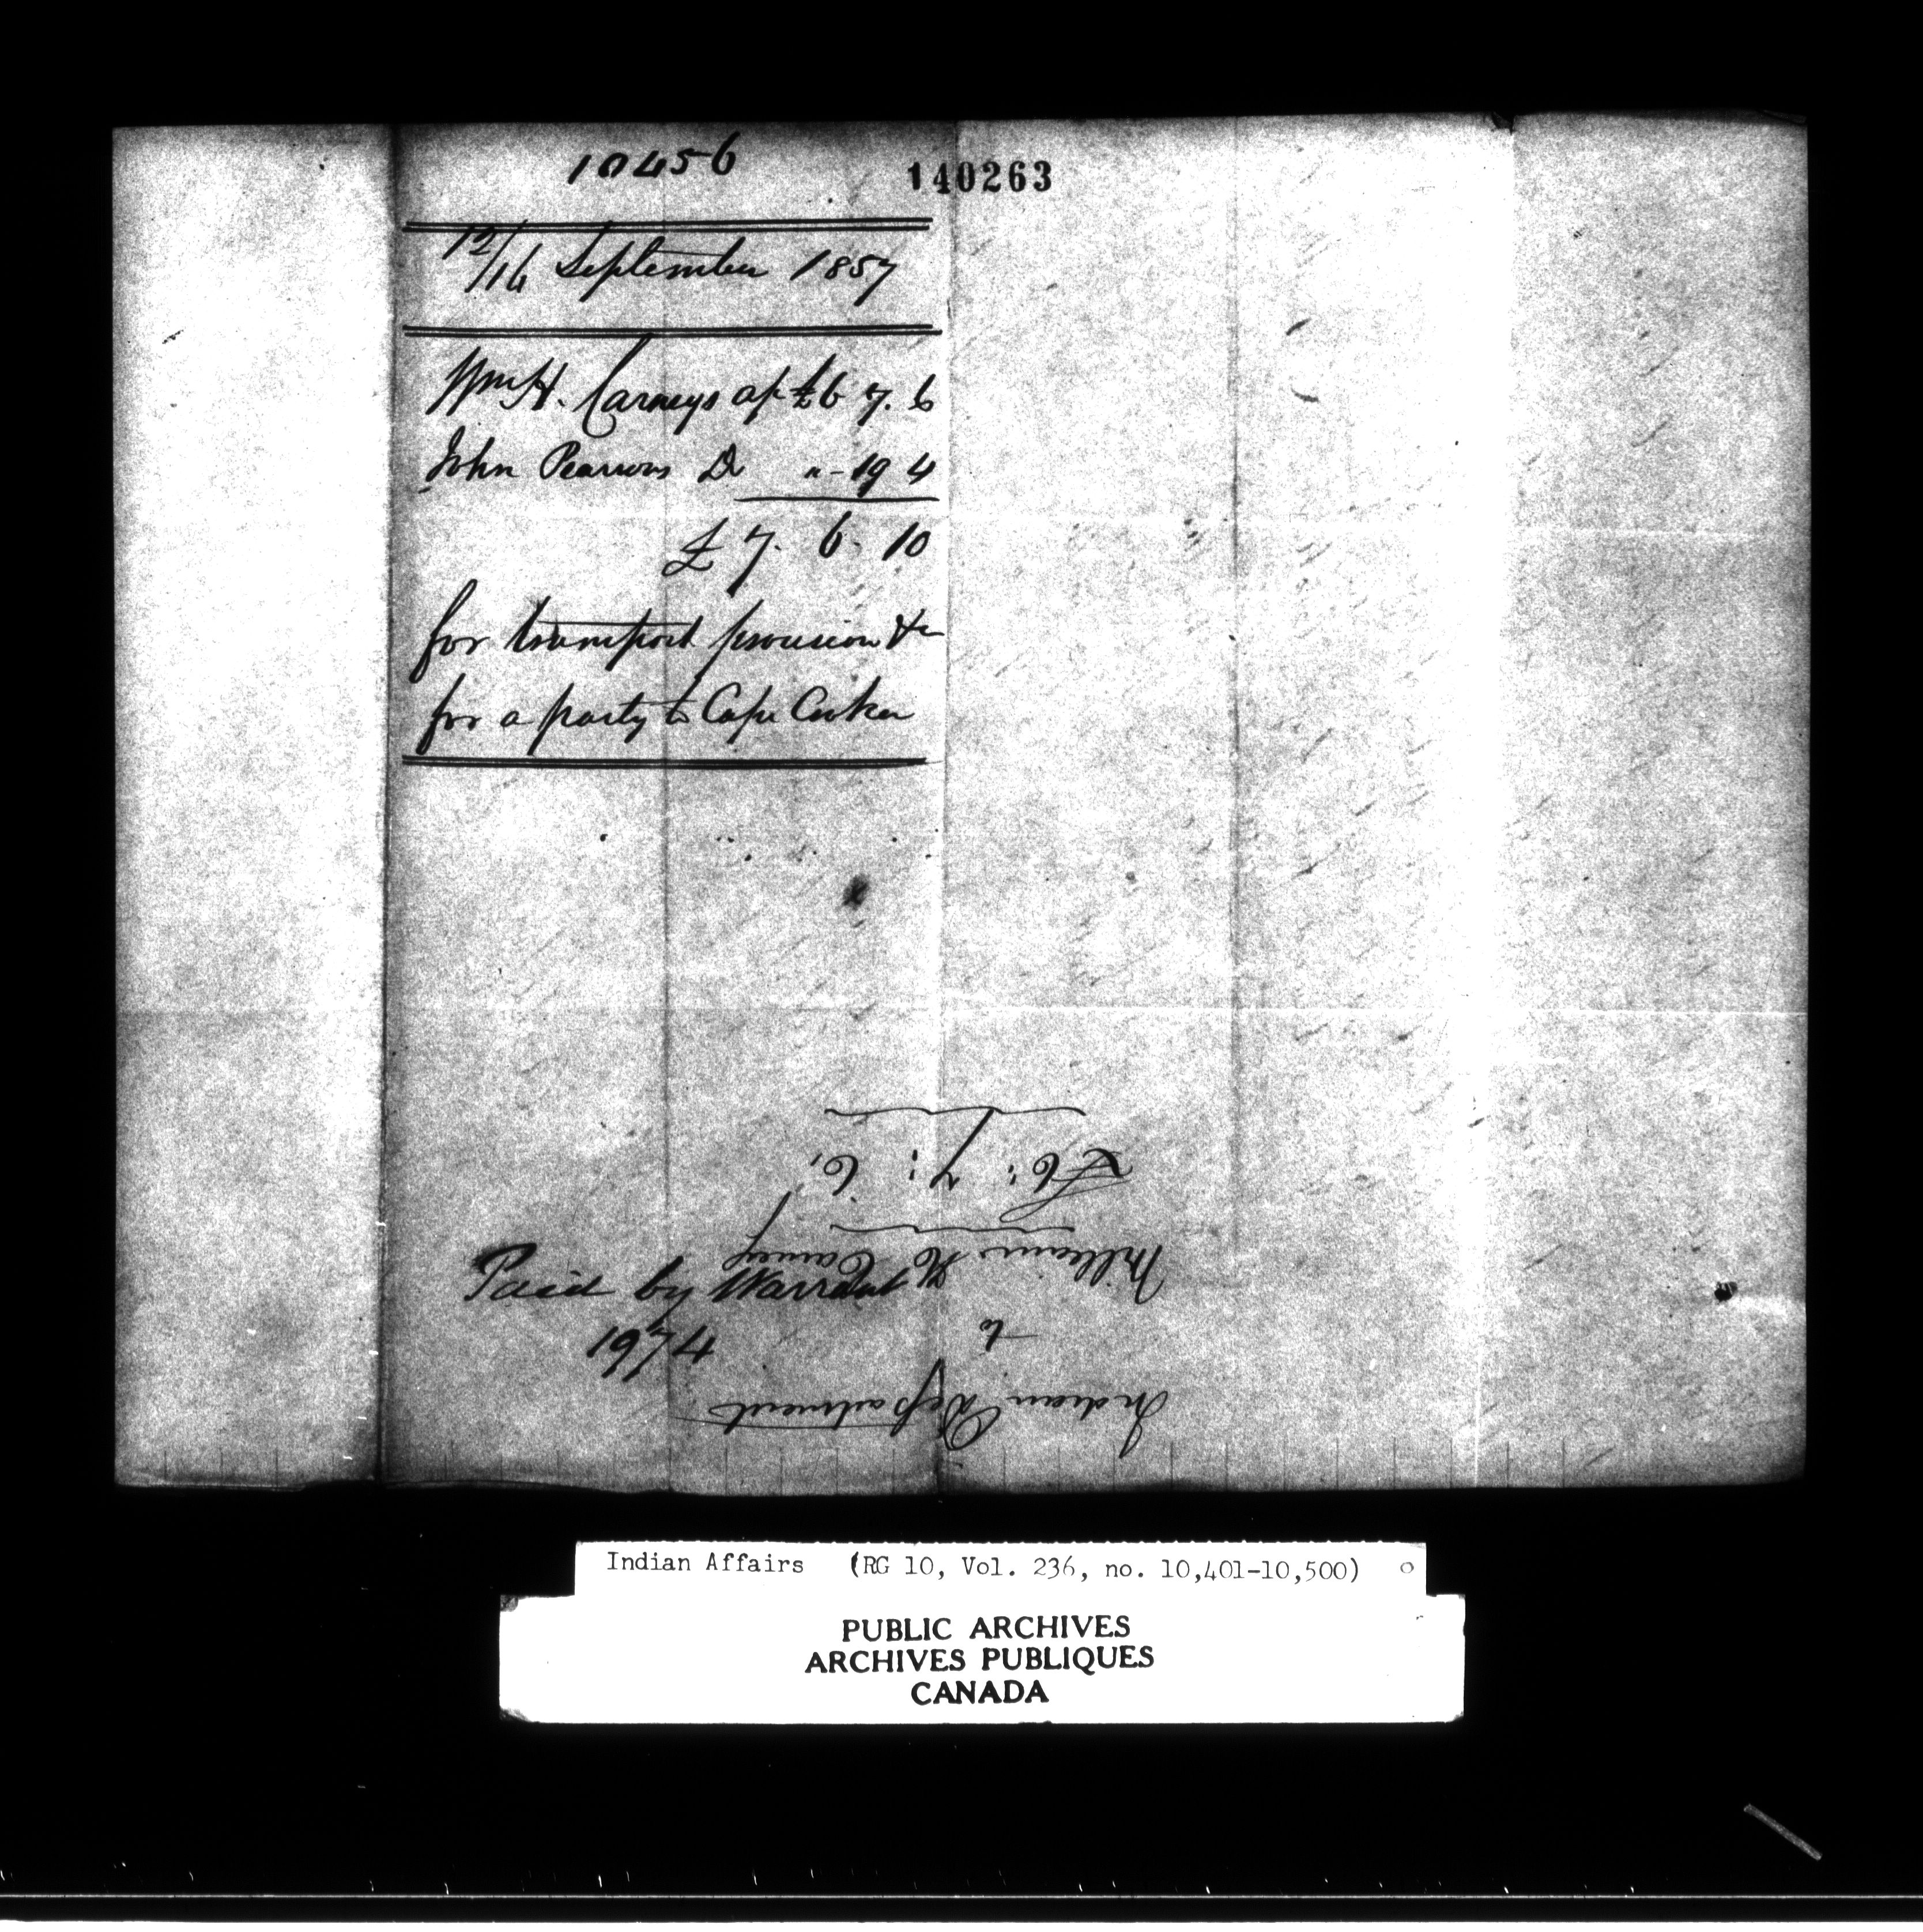 10456
140263
12/16 September 1857
Wm H. Carneys a/c £6 7. 6
John Pearsons Do "-19 4
£ 7. 6. 10
for transport provision &c
for a party to Cape Croker
Paid by Warrant
1974
Indian Department
to
William H Carney
£6: 7: 6,
Indian Affairs (RG 10, Vol. 236, no. 10,401-10,500)
PUBLIC ARCHIVES
ARCHIVES PUBLIQUES
CANADA